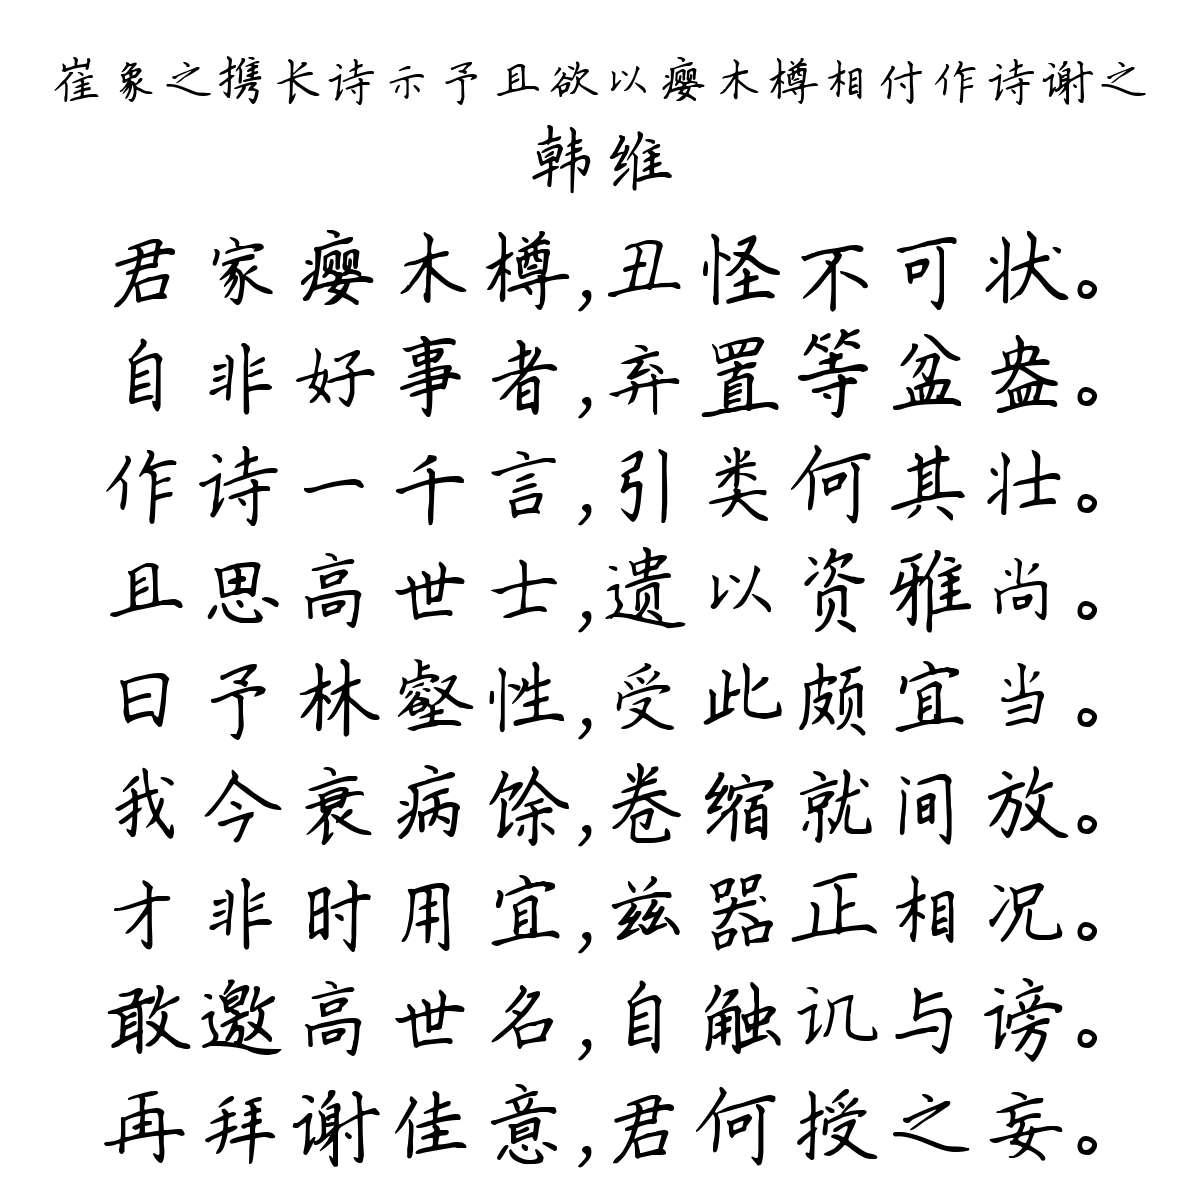 崔象之携长诗示予且欲以瘿木樽相付作诗谢之
韩维
君家瘿木樽,丑怪不可状。
自非好事者,弃置等盆盎。
作诗一千言,引类何其壮。
且思高世士,遗以资雅尚。
曰予林壑性,受此颇宜当。
我今衰病馀,卷缩就间放。
才非时用宜,兹器正相况。
敢邀高世名,自触讥与谤。
再拜谢佳意,君何授之妄。